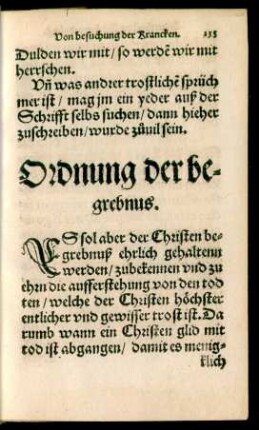 Von besuchung der Krancken. 235
Dulden wir mit / so werdē wir mit
herrschen.
Vn̄ was andrer trostlichē sprüch
mer ist / mag jm ein yeder auß der
Schrifft selbs suchen / dann hieher
zuschreiben / wurde zůuil sein.
Ordnung der be-
grebnus.
ES sol aber der Christen be-
grebnuß ehrlich gehaltenn
werden / zubekennen vnd zu
ehrn die aufferstehung von den tod
ten / welche der Christen höchster
entlicher vnd gewisser trost ist. Da
rumb wann ein Christen glid mit
tod ist abgangen / damit es menig-
klich